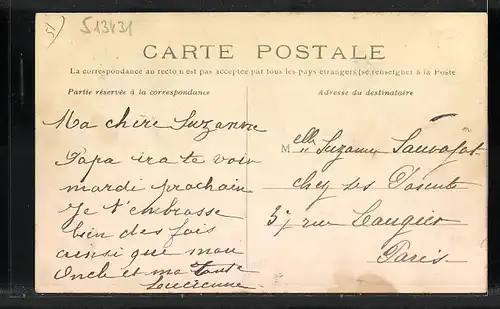 513431
CARTE POSTALE
La correspondance au recto n'est pas acceptée par tous les pays étrangers (se renseigner à la Poste
Partie réservée à la correspondance
Adresse du destinataire
Ma chère Suzanne
Papa ira te voir
mardi prochain
Je t'embrasse
bien des fois
ainsi que mon
Oncle et ma tante
Lucienne
Melle Suzanne
chez ses
37 rue Laugier
Paris